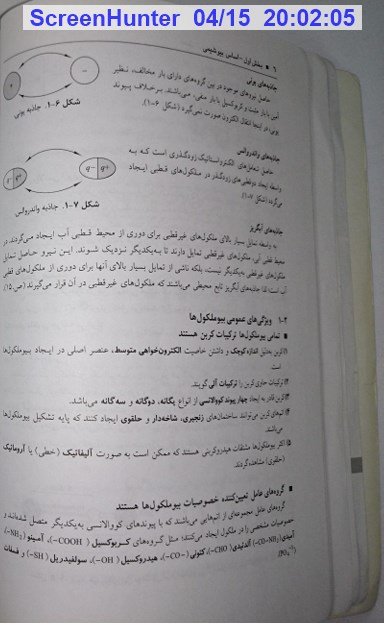 ScreenHunter 04/15 20:02:05
۶ ■ بخش اول - اساس بیوشیمی
جاذبه‌های یونی
حاصل نیروهای موجود در بین گروه‌های دارای بار مخالف، نظیر
آمین با بار مثبت و کربوکسیل با بار منفی، می‌باشند. برخلاف پیوند
یونی، در اینجا انتقال الکترون صورت نمی‌گیرد (شکل ۶-۱).
شکل ۶-۱. جاذبه یونی
جاذبه‌های واندروالسی
حاصل تعامل‌های الکترواستاتیک زودگذری است که به
واسطه ایجاد دوقطبی‌های زودگذر در ملکول‌های قطبی ایجاد
می‌گردد (شکل ۷-۱).
شکل ۷-۱. جاذبه واندروالس
جاذبه‌های آبگریز
به واسطه تمایل بسیار بالای ملکول‌های غیرقطبی برای دوری از محیط قطبی آب ایجاد می‌گردند. در
محیط قطبی آبی، ملکول‌های غیرقطبی تمایل دارند تا به‌یکدیگر نزدیک شوند. این نیرو حاصل تمایل
ملکول‌های غیرقطبی به‌یکدیگر نیست، بلکه ناشی از تمایل بسیار بالای آنها برای دوری از ملکول‌های قطبی
آب است؛ لذا جاذبه‌های آبگریز تابع محیطی می‌باشند که ملکول‌های غیرقطبی در آن قرار می‌گیرند (ص۱۵).
۲-۱ ویژگی‌های عمومی بیوملکول‌ها
■ تمامی بیوملکول‌ها ترکیبات کربن هستند
کربن به‌دلیل اندازه کوچک و داشتن خاصیت الکترون‌خواهی متوسط، عنصر اصلی در ایجاد بیوملکول‌ها
است.
ترکیبات حاوی کربن را ترکیبات آلی گویند.
کربن قادر به ایجاد چهار پیوند کووالانسی از انواع یگانه، دوگانه و سه‌گانه می‌باشد.
اتم‌های کربن می‌توانند ساختمان‌های زنجیری، شاخه‌دار و حلقوی ایجاد کنند که پایه تشکیل بیوملکول‌ها
می‌باشد.
اکثر بیوملکول‌ها مشتقات هیدروکربنی هستند که ممکن است به صورت آلیفاتیک (خطی) یا آروماتیک
(حلقوی) مشاهده گردند.
■ گروه‌های عامل تعیین‌کننده خصوصیات بیوملکول‌ها هستند
گروه‌های عامل مجموعه‌ای از اتم‌هایی می‌باشند که با پیوندهای کووالانسی به‌یکدیگر متصل شده‌اند و
خصوصیات مشخصی را در ملکول ایجاد می‌کنند؛ مثل گروه‌های کربوکسیل (COOH-)، آمینو (NH₂-)،
آمیدی (CO-NH₂-)، آلدئیدی (CHO-)، کتونی (-CO-)، هیدروکسیل (OH-)، سولفیدریل (SH-) و فسفات